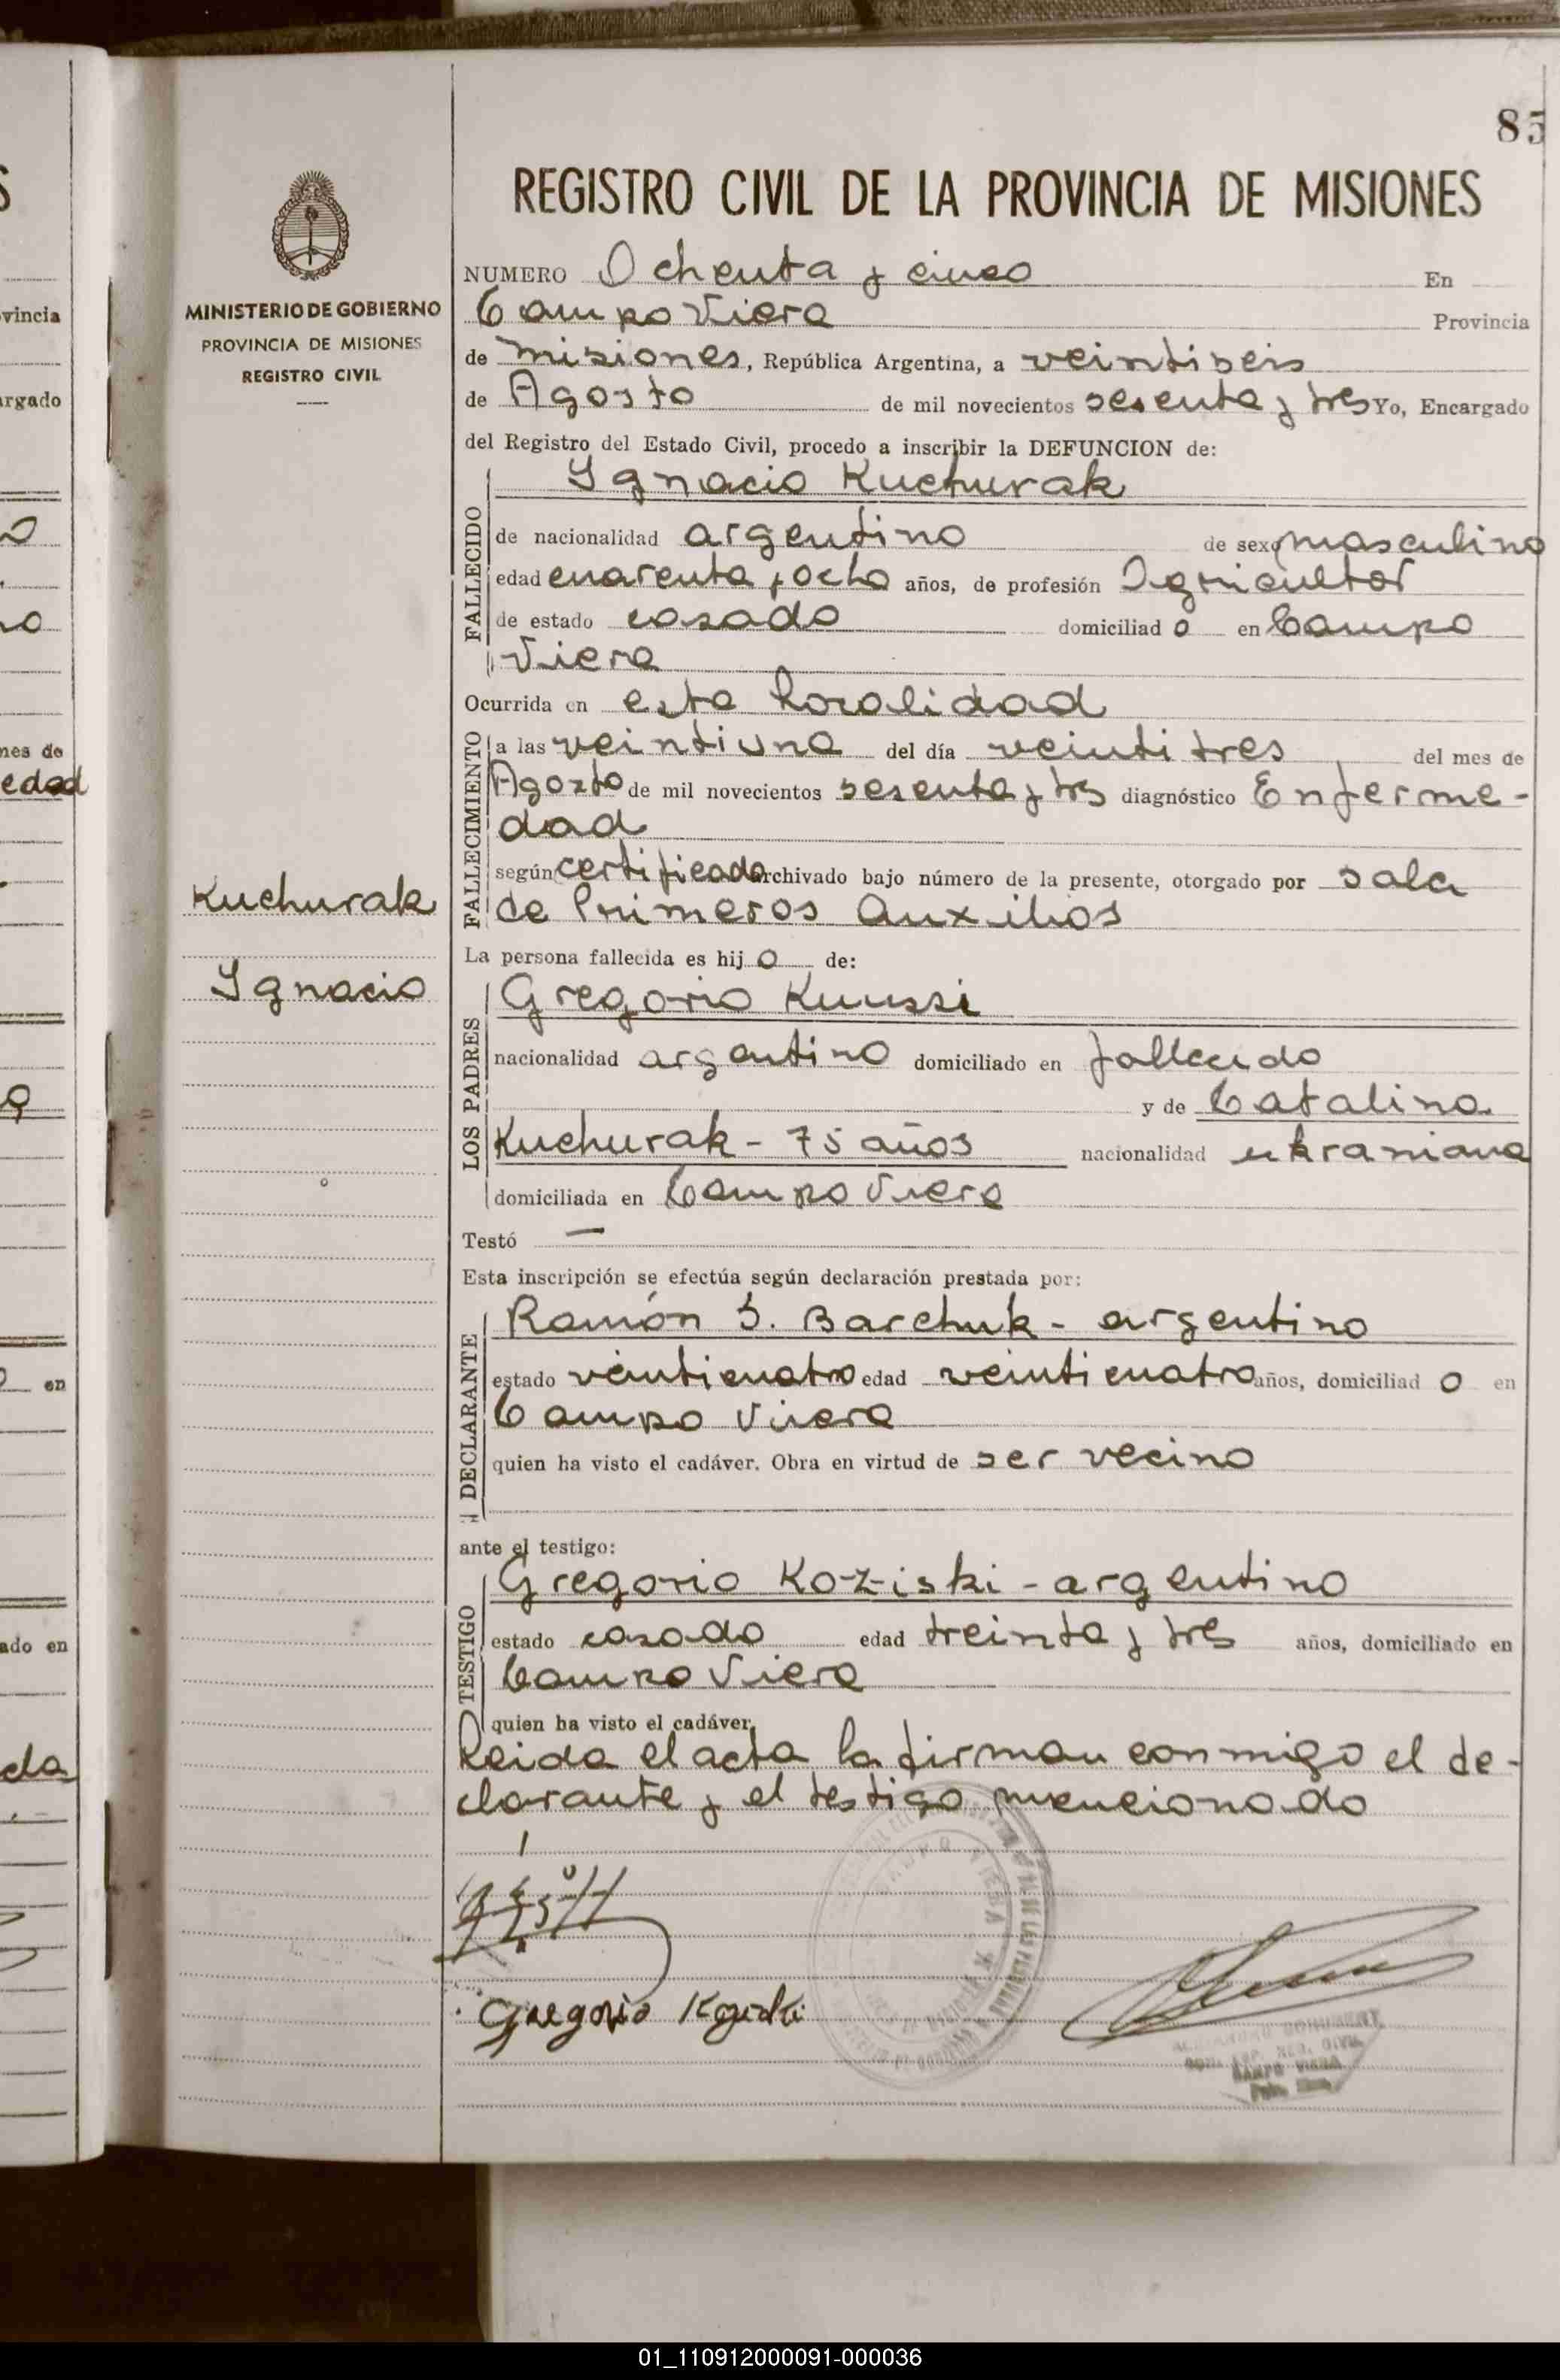 85
REGISTRO CIVIL DE LA PROVINCIA DE MISIONES
MINISTERIO DE GOBIERNO
PROVINCIA DE MISIONES
REGISTRO CIVIL
NUMERO Ochenta y cinco En
Campo Viera Provincia
de Misiones, República Argentina, a veintiseis
de Agosto de mil novecientos sesenta y tres Yo, Encargado
del Registro del Estado Civil, procedo a inscribir la DEFUNCION de:
Ignacio Kuchurak
FALLECIDO
de nacionalidad argentino de sexo masculino
edad cuarenta y ocho años, de profesión Agricultor
de estado casado domiciliado en Campo
Viera
Ocurrida en esta localidad
FALLECIMIENTO
a las veintiuna del día veinti tres del mes de
Agosto de mil novecientos sesenta y tres diagnóstico Enferme-
dad
según certificado archivado bajo número de la presente, otorgado por sala
de Primeros Auxilios
Kuchurak
Ignacio
La persona fallecida es hijo de:
LOS PADRES
Gregorio
nacionalidad argentino domiciliado en fallecido
y de Catalina
Kuchurak - 75 años nacionalidad ukraniana
domiciliada en Campo Viera
Testó —
Esta inscripción se efectúa según declaración prestada por:
DECLARANTE
Ramón S. Barchuk - argentino
estado veinticuatro edad veinticuatro años, domiciliado en
Campo Viera
quien ha visto el cadáver. Obra en virtud de ser vecino
ante el testigo:
TESTIGO
Gregorio Koziski - argentino
estado casado edad treinta y tres años, domiciliado en
Campo Viera
quien ha visto el cadáver.
Leida el acta la firman conmigo el de-
clarante y el testigo mencionado
Gregorio
CAMPO VIERA
vincia
argado
mes de
edad
en
ado en
01_110912000091-000036